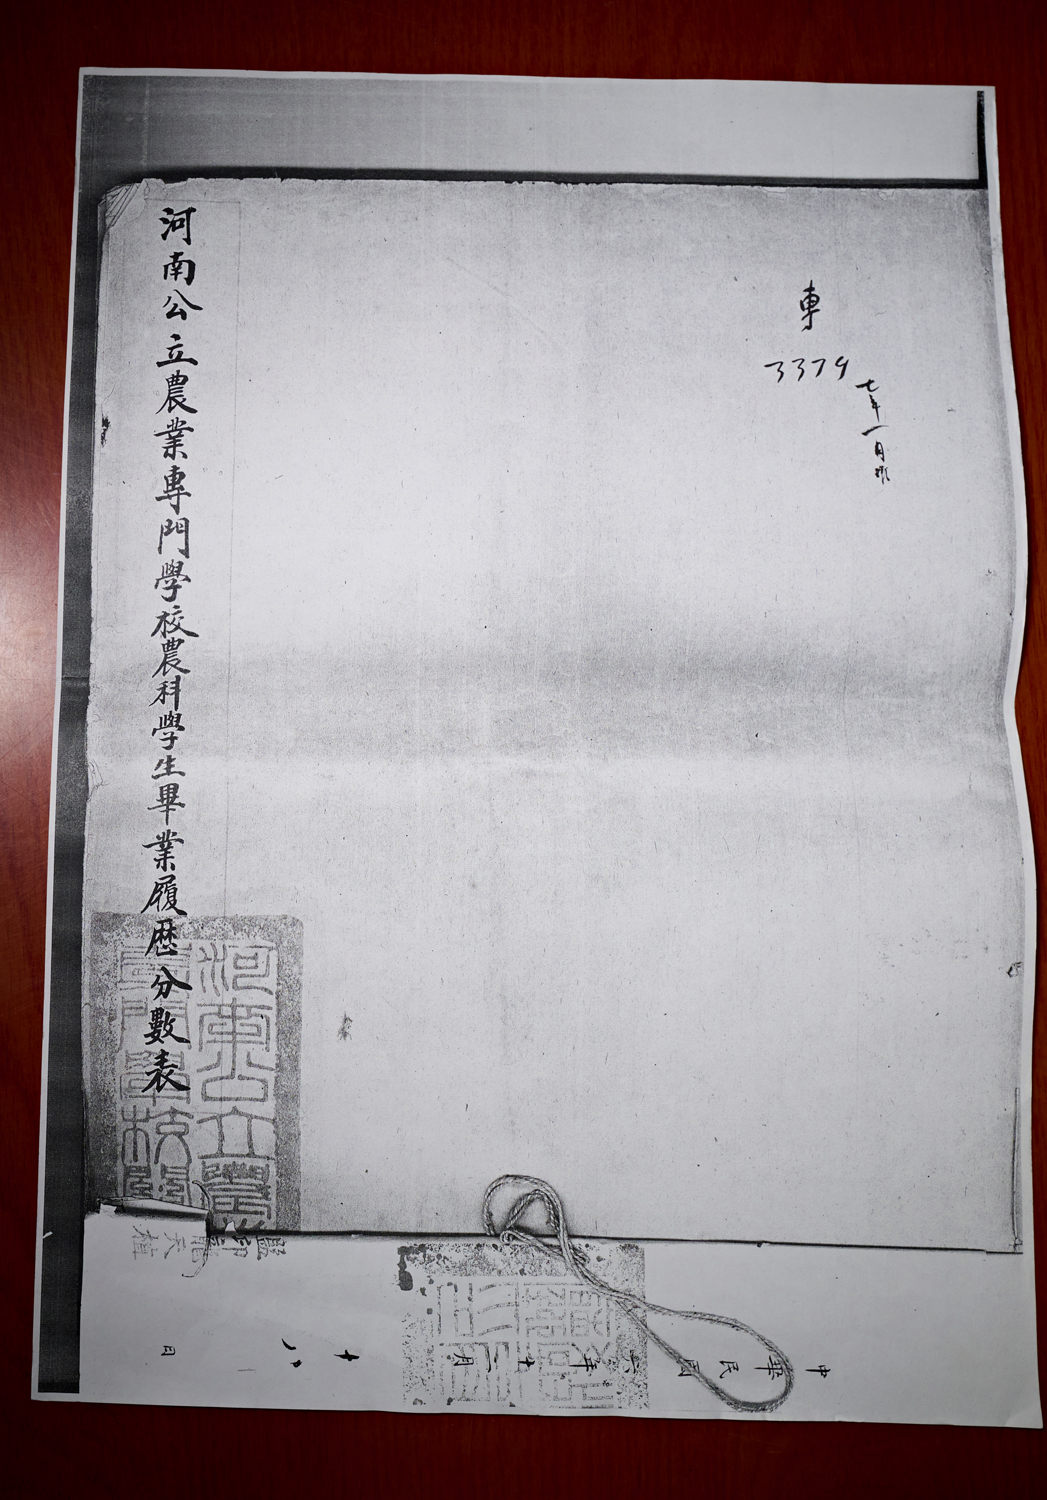 專
3379
七年一月
河南公立農業專門學校農科學生畢業履歷分數表
河南公立農
專門學校關
中華民國六年十二月十八日